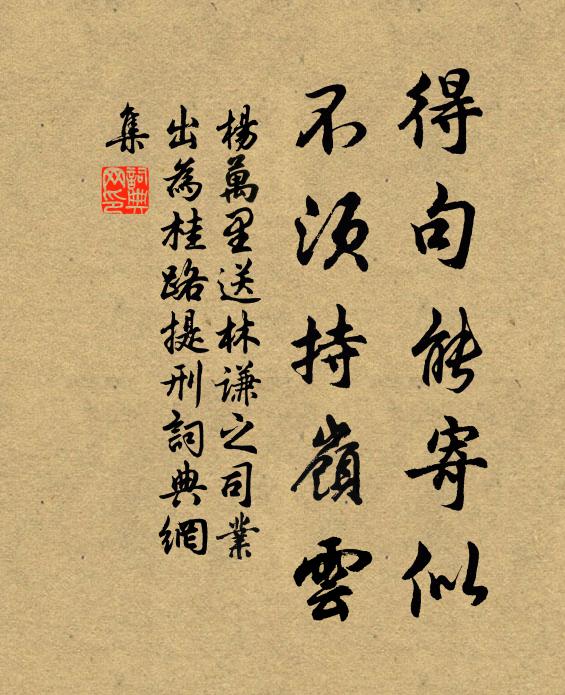 得句能寄似
不須持嶺雲
楊萬里送林謙之司業
出為桂路提刑詞典網
集
詞典网印